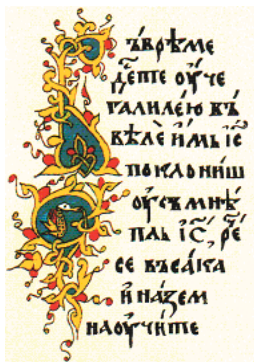 ъврѣме
д҃епте оуче
галилею въ
вѣлѐ и҆мь іс҃
поклониш
оусъмнѣ
паь іс҃, ре҃
се въсака
и҆ на́зем
наоучи́те